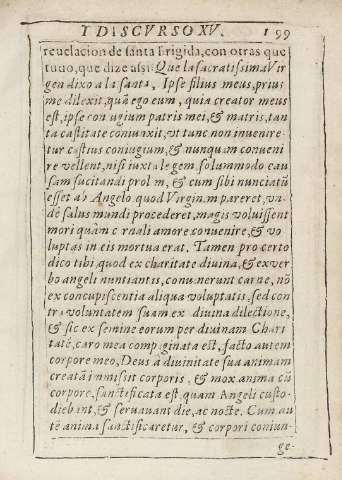 Y DISCVRSO XV. 199
reuelacion de santa Brigida, con otras que
tuuo, que dize assi: Que la sacratissima Vir
gen dixo a la santa, Ipse filius meus, prius
me dilexit, quã ego eum, quia creator meus
est, ipse coniugium patris mei, & matris, tan
ta castitate coniunxit, vt tunc non inuenire-
tur castius coniugium, & nunquam conueni
re vellent, nisi iuxta legem, solummodo cau
sam suscitandi prolem, & cum sibi nunciatũ
esset ab Angelo, quod Virginem pareret, vn
de salus mundi procederet, magis voluissent
mori quàm carnali amore conuenire, & vo
luptas in eis mortua erat. Tamen pro certo
dico tibi, quod ex charitate diuina, & ex ver
bo angeli nuntiantis, conuenerunt carne, nõ
ex concupiscentia aliqua voluptatis, sed con
tra voluntatem suam ex diuina dilectione,
& sic ex semine eorum per diuinam Chari
tatẽ, caro mea compaginata est, facto autem
corpore meo, Deus à diuinitate sua animam
creatã inmissit corporis, & mox anima cũ
corpore, sanctificata est, quam Angeli custo-
diebant, & seruauant die, ac nocte. Cum au
tẽ anima sanctificaretur, & corpori coniun-
ge-